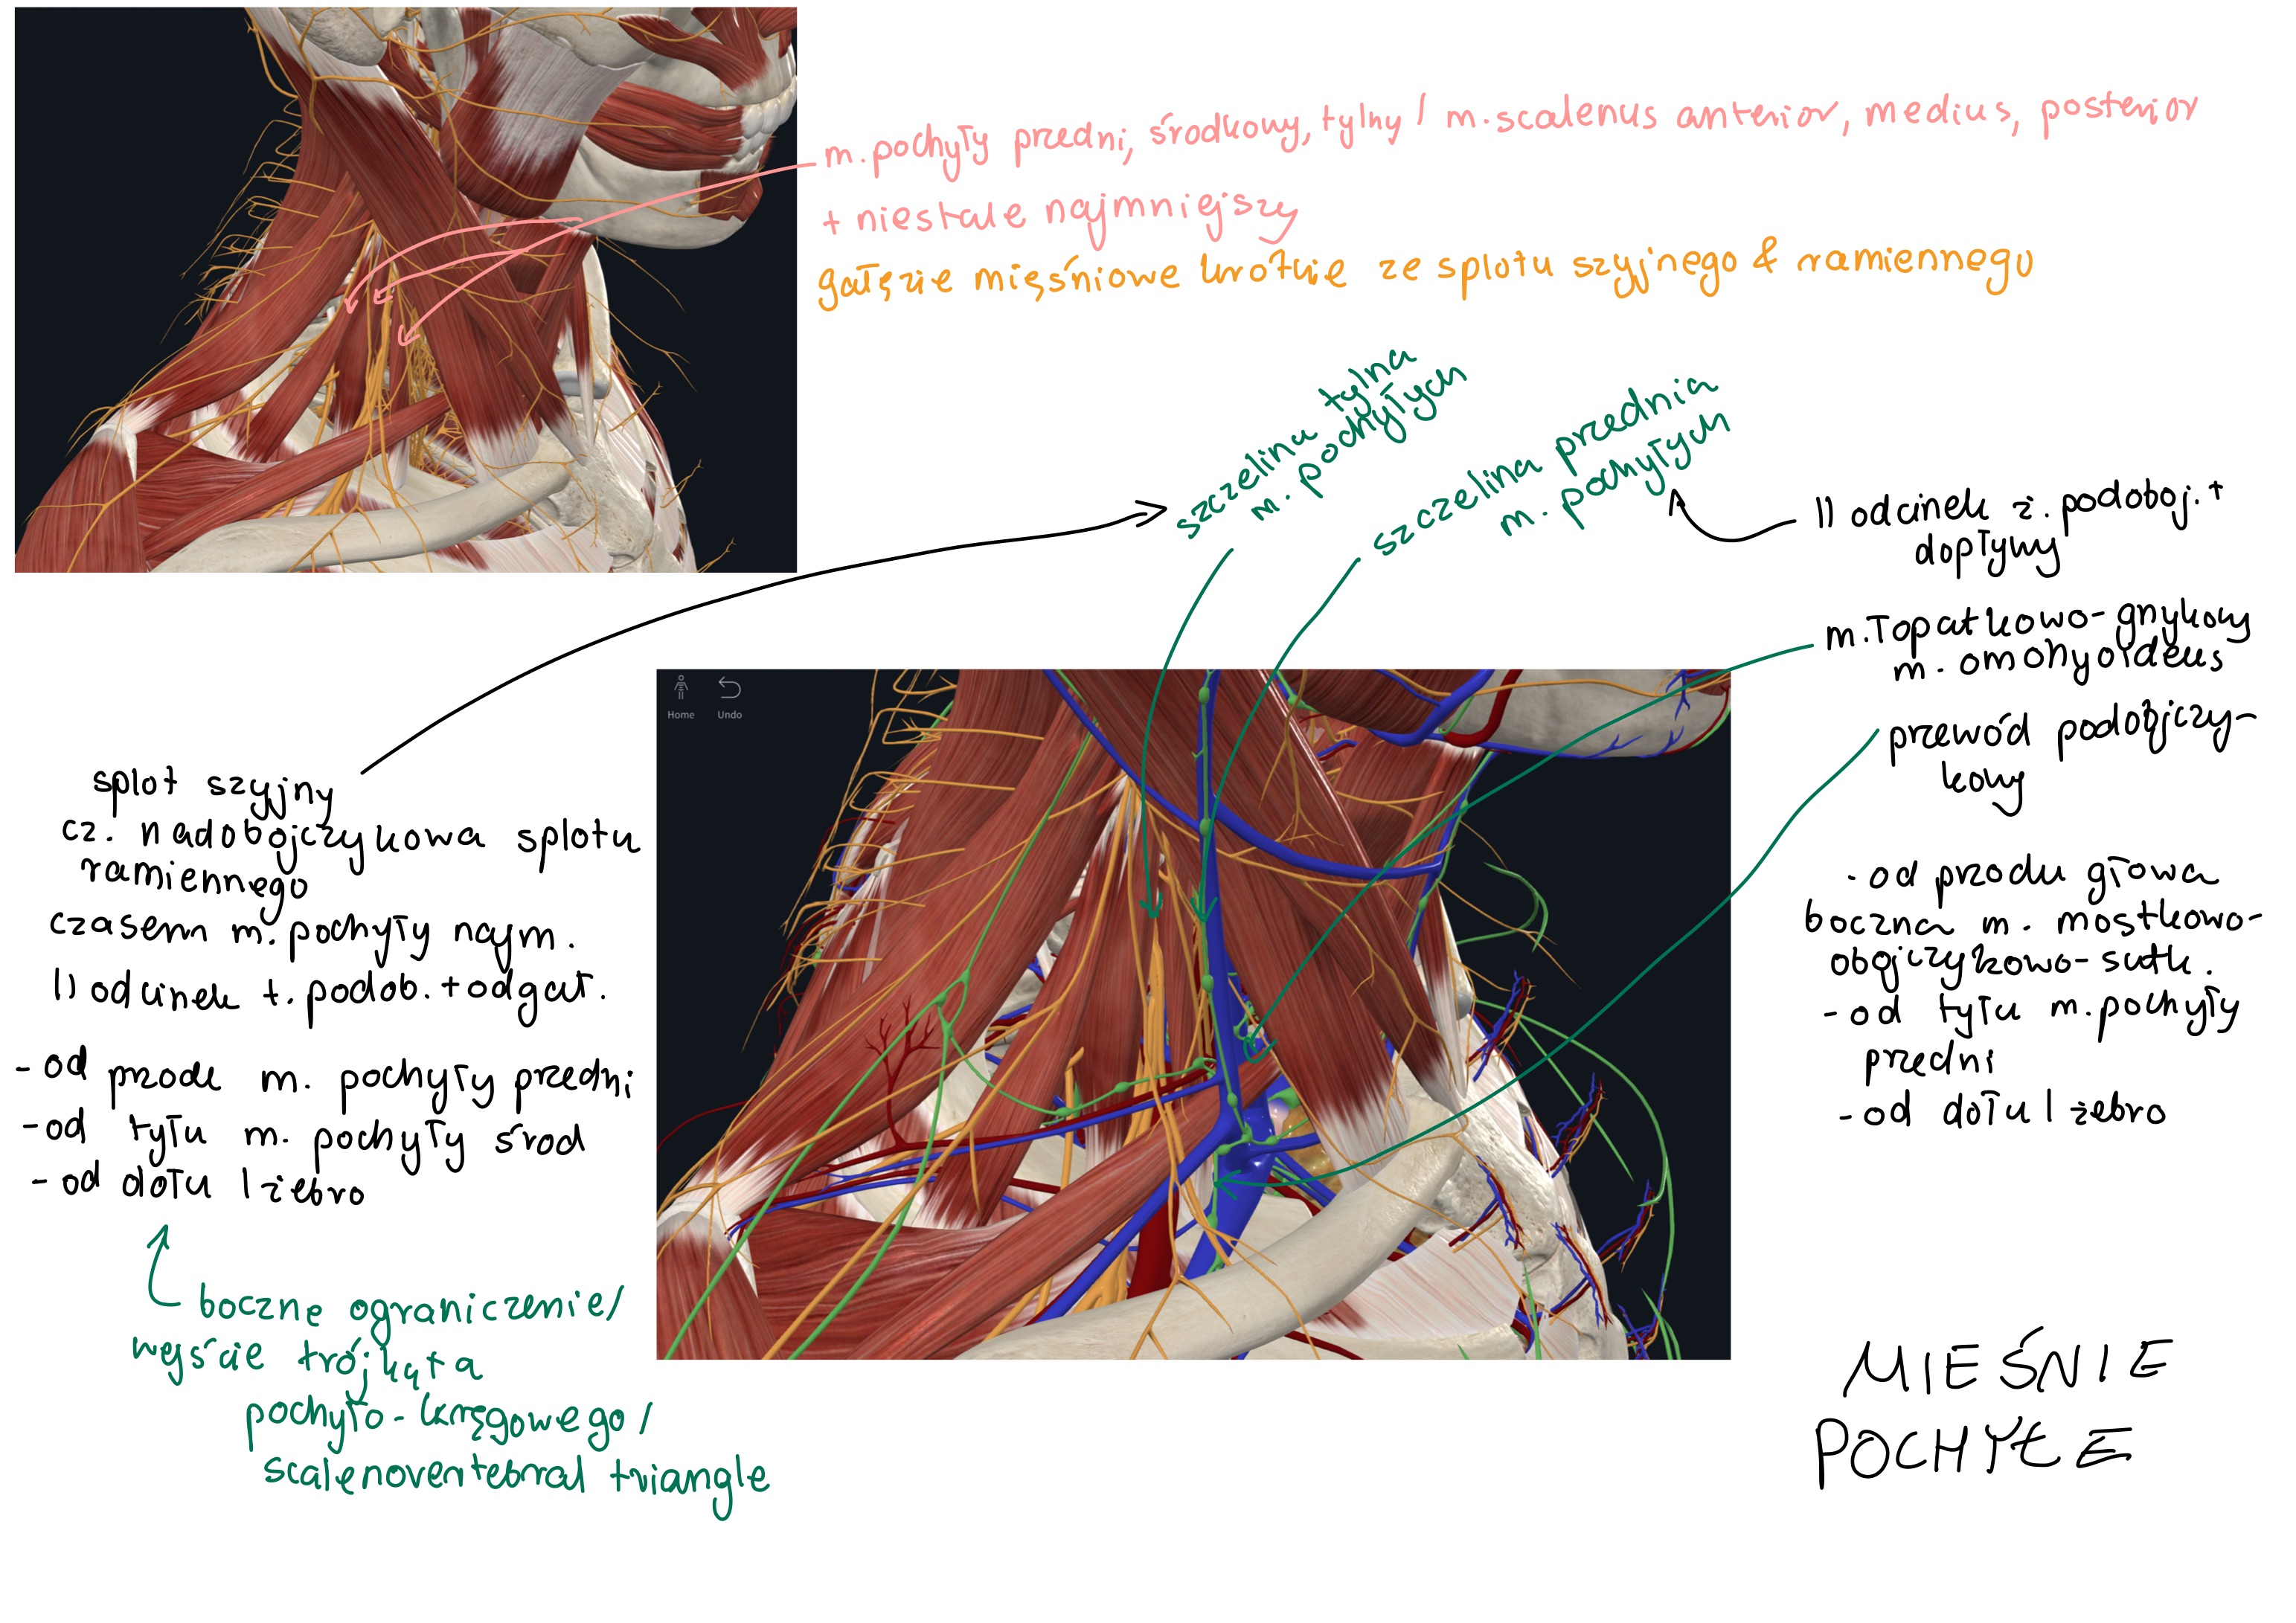 m. pochyły przedni, środkowy, tylny / m. scalenus anterior, medius, posterior
+ niestale najmniejszy
gałęzie mięśniowe krótkie ze splotu szyjnego & ramiennego
szczelina tylna
m. pochyłych
szczelina przednia
m. pochyłych
II odcinek ż. podoboj. +
dopływy
m. łopatkowo-gnykowy
m. omohyoideus
przewód podobjczy-
kowy
- od przodu głowa
boczna m. mostkowo-
obojczykowo-sutk.
- od tyłu m. pochyły
przedni
- od dołu I żebro
Home Undo
splot szyjny
cz. nadobojczykowa splotu
ramiennego
czasem m. pochyły najm.
II odcinek t. podob. + odgał.
- od przode m. pochyły przedni
- od tyłu m. pochyły środ
- od dołu I żebro
boczne ograniczenie/
wejście trójkąta
pochyło-kręgowego/
scalenovertebral triangle
MIEŚNIE
POCHYŁE